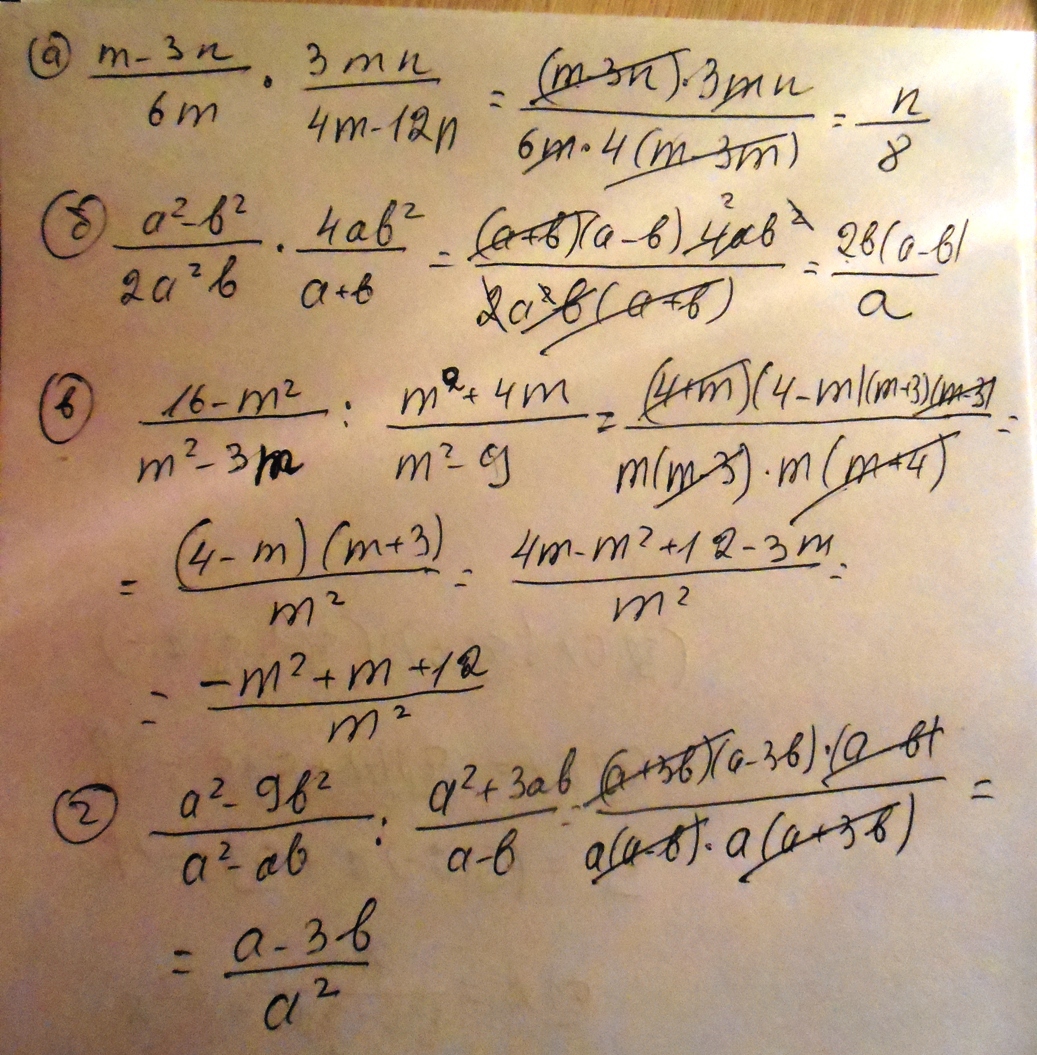 а) (m-3n)/(6m) · (3mn)/(4m-12n) = ((m-3n)·3mn)/(6m·4(m-3m)) = n/8
б) (a²-b²)/(2a²b) · (4ab²)/(a+b) = ((a+b)(a-b) 4ab²)/(2a²b(a+b)) = (2b(a-b))/a
в) (16-m²)/(m²-3m) : (m²+4m)/(m²-9) = ((4+m)(4-m)(m+3)(m-3))/(m(m-3)·m(m+4)) =
= ((4-m)(m+3))/m² = (4m-m²+12-3m)/m² =
= (-m²+m+12)/m²
г) (a²-9b²)/(a²-ab) : (a²+3ab)/(a-b) = ((a+3b)(a-3b)·(a-b))/(a(a-b)·a(a+3b)) =
= (a-3b)/a²